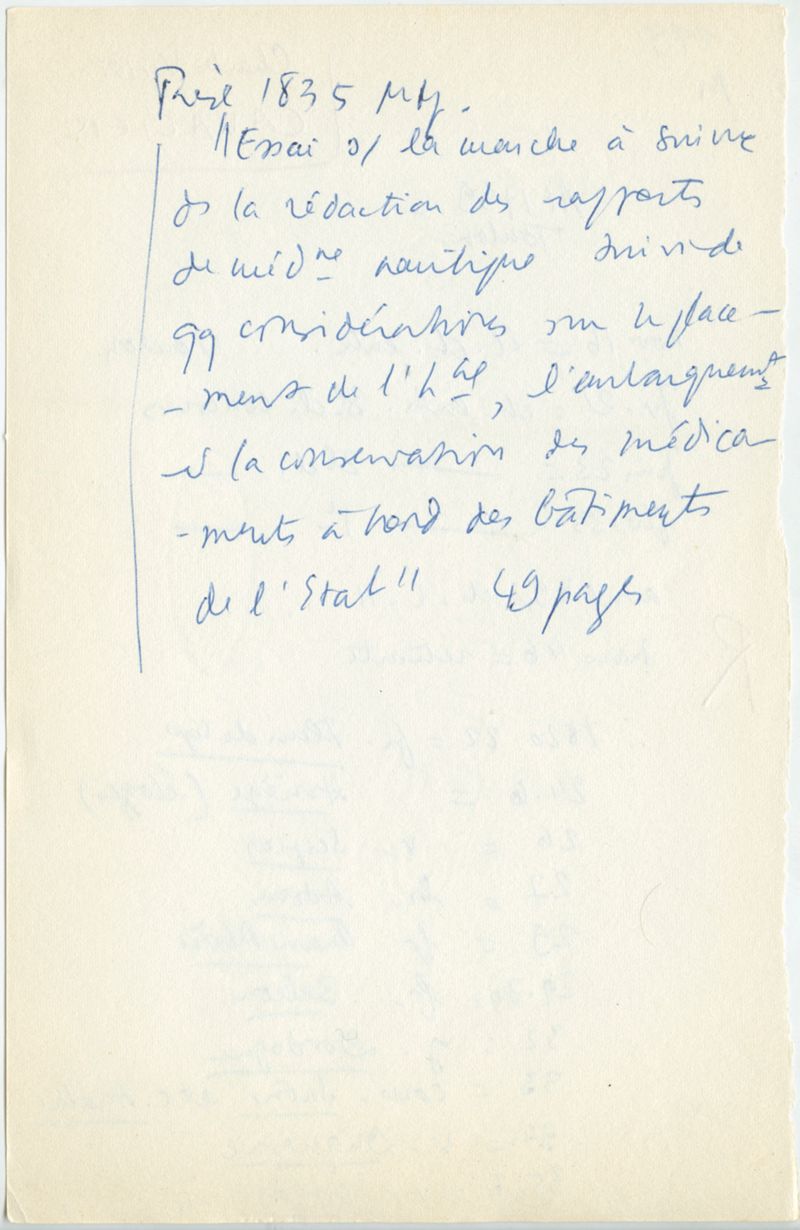 Thèse 1835 MM.
"Essai s/ la marche à suivre
ds la rédaction des rapports
de médne nautique suivi de
qq considérations sur le place-
-ment de l'hal, l'embarquemt
et la conservation des médica-
-ments à bord des bâtiments
de l'Etat" 49 pages